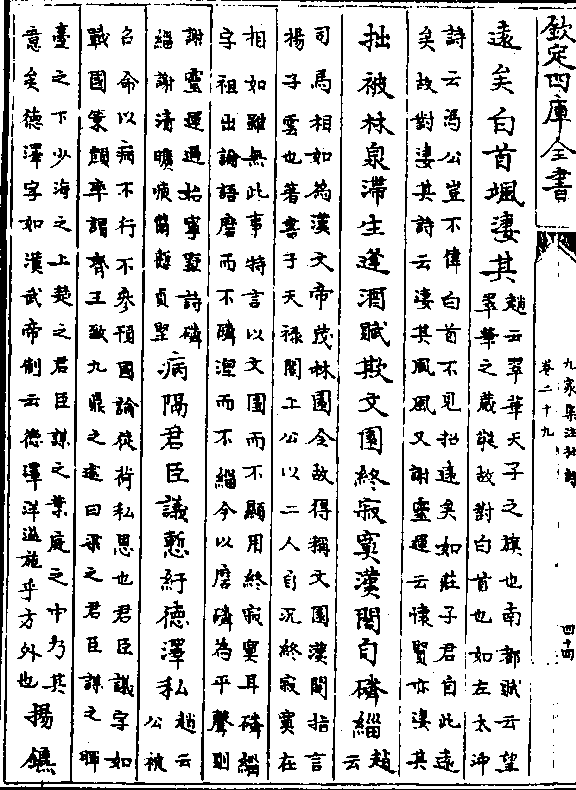 欽定四庫全書
九家集注杜詩
卷二十九
四十四
遠矣白首颯凄其
趙云翠華天子之旗也南都賦云望
翠華之葳蕤故對白首也如左太冲
詩云馮公豈不偉白首不見招遠矣如莊子君自此遠
矣故對凄其詩云凄其風風又謝靈運云懷賢亦凄其
拙被林泉滯生逢酒賦欺文園終寂寞漢閣自磷緇
趙
云
司馬相如為漢文帝茂林園令故得稱文園漢閣指言
揚子雲也著書于天祿閣上公以二人自况終寂寞在
相如雖無此事特言以文園而不顯用終寂寞耳磷緇
字祖出論語磨而不磷涅而不緇今以磨磷為平聲則
謝靈運過始寧墅詩磷
緇謝清曠疲薾慙貞堅
病隔君臣議慙紆德澤私
趙云
公被
召命以病不行不參預國論徒荷私恩也君臣議字如
戰國策顏率謂齊王致九鼎之塗曰梁之君臣謀之暉
臺之下少海之上楚之君臣謀之葉庭之中乃其
意矣德澤字如漢武帝制云德澤洋溢施乎方外也
揚鑣